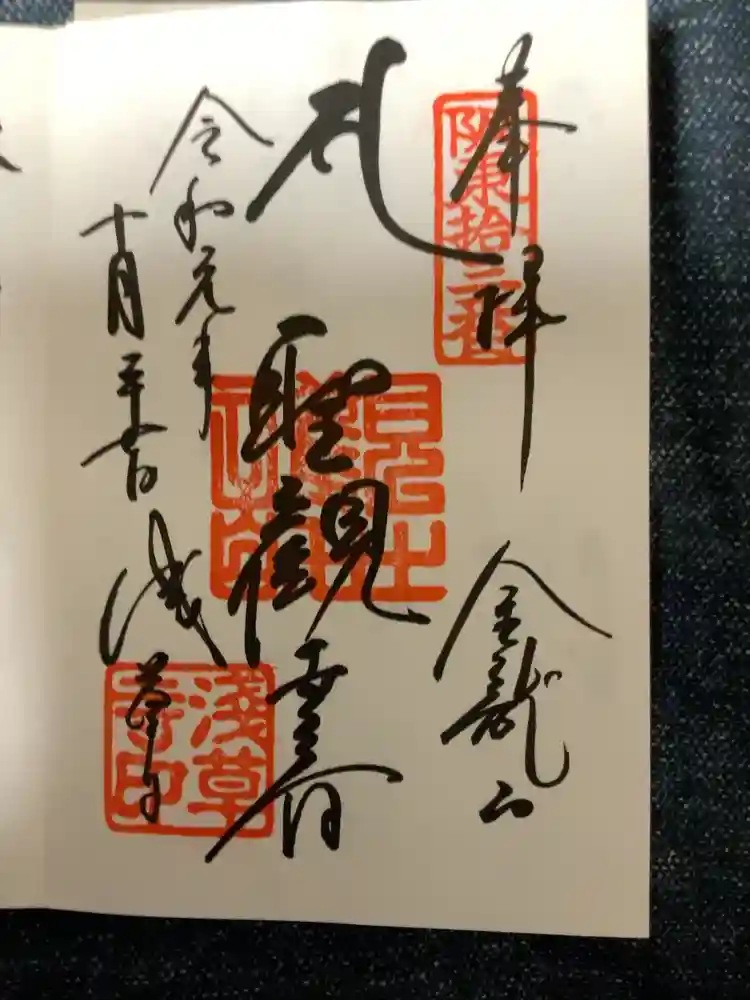 奉拝
坂東拾三番
金龍山
聖観世音
令和元年
十月二十
浅草寺
浅草寺印